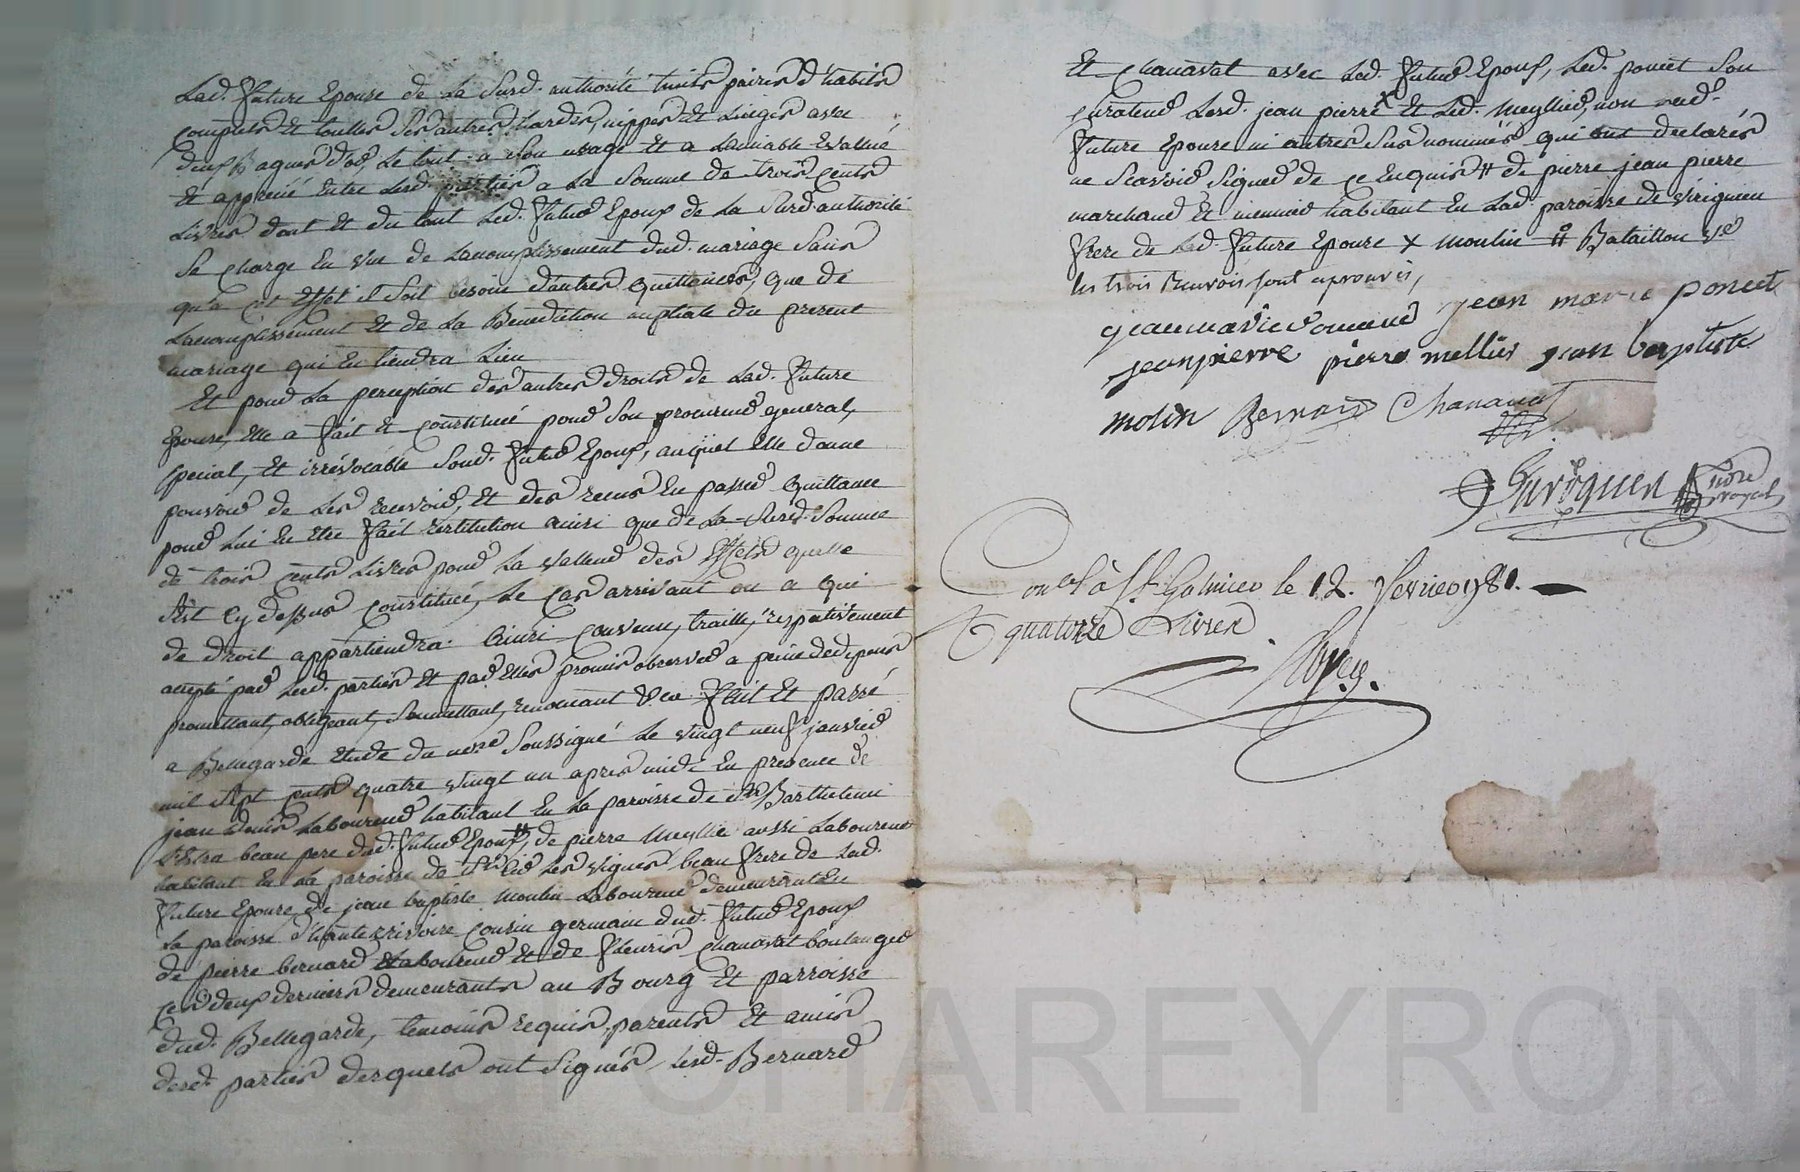 Lad. future Epouse de La Susd. authorité trois paires d'habits
complets Et touttes Ses autres hardes, nippes Et Linges avec
deux Bagues d'or, Le tout a Son usage Et a Lamiable Evallué
Et apprecié Entre Lesd. parties a La Somme de trois Cents
Livres dont Et du tout Led. futur Epoux de La Susd. authorité
Se charge En vue de Lacomplissement dud. mariage Sans
qu'a cet Effet il Soit besoin dautres quittances, que de
Lacomplissement Et de La Benediction nuptiale du present
mariage qui En tiendra Lieu
Et pour La perception des autres droits de Lad. future
Epouse, Elle a fait Et Constitué pour Son procureur general,
special, Et irrévocable Sond. futur Epoux, auquel Elle donne
pouvoir de Les recevoir, Et des recus En passer quittance
pour Lui En Etre fait restitution ainsi que de La Susd. Somme
de trois Cents Livres pour La valleur des Effets quelle
S'est Cy dessus Constitué, Le Cas arrivant ou a qui
de droit appartiendra. Ainsi Convenu, traitté, respectivement
accepté par Lesd. parties Et par Elles promis observer a peine de depens
promettant, obligeant, Soumettant, renoncant &ca. fait Et passé
a Bellegarde Etude du nore Soussigné Le vingt neuf janvier
mil Sept Cents quatre vingt un apres midi En presence de
jean denis Laboureur habitant En La paroisse de St Barthelemi
Lestra beau pere dud. futur Epoux, # de pierre Meyllie aussi Laboureur
habitant En La paroisse de St Cir Les vignes beau frere de Lad.
future Epouse, de jean baptiste Moulin Laboureur demeurant En
La paroisse d'hauterivoire Cousin germain dud. futur Epoux
de pierre bernard Laboureur Et de fleuris Chanavat boulanger
Ces deux derniers demeurants au Bourg Et parroisse
dud. Bellegarde, temoins requis, parents Et amis
desd. parties desquels ont Signés Lesd. Bernard
Et Chanavat avec Led. futur Epoux, Led. poncet Son
Curateur Lesd. jean pierre X Et Led. Meyllier, non Lad.
future Epouse ni autres Sus nommés qui ont declarés
ne Scavoir Signer de Ce Enquis # de pierre jean pierre
marchand Et habitant En Lad. paroisse de virignieu
frere de Lad. future Epouse X Moulin # Bataillon
les trois renvois sont aprouvés,
jean marie poncet
jeanpierre pierre mellier jean baptiste
molin Bernard Chanavat
nore
royal
Conlé à St. Galmier le 12. fevrier 1781.
quatorze Livres
CHAREYRON